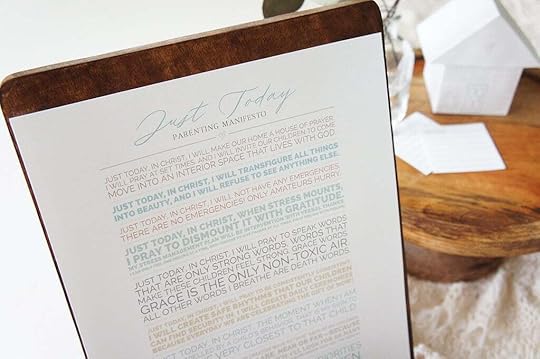 Just Today
PARENTING MANIFESTO
JUST TODAY, IN CHRIST, I WILL MAKE OUR HOME A HOUSE OF PRAYER
I WILL PRAY AT SET TIMES, AND I WILL INVITE OUR CHILDREN TO COME
MOVE INTO AN INTERIOR SPACE THAT LIVES WITH GOD.
JUST TODAY, IN CHRIST, I WILL TRANSFIGURE ALL THINGS
INTO BEAUTY, AND I WILL REFUSE TO SEE ANYTHING ELSE.
JUST TODAY, IN CHRIST, I WILL NOT HAVE ANY EMERGENCIES
THERE ARE NO EMERGENCIES ONLY AMATEURS HURRY
JUST TODAY, IN CHRIST, WHEN STRESS MOUNTS,
I PRAY TO DISMOUNT IT WITH GRATITUDE.
MY STRESS MANAGEMENT PLAN WILL BE INTERVENTION WITH
JUST TODAY, IN CHRIST, I WILL PRAY TO SPEAK WORDS
THAT ARE ONLY STRONG WORDS, WORDS THAT
MAKE THESE CHILDREN FEEL STRONG. GRACE WORDS
GRACE IS THE ONLY NON-TOXIC AIR
ALL OTHER WORDS I BREATHE ARE DEATH WORDS
I WILL CREATE SAFE PLACES THAT OUR CHILDREN
JUST TODAY, IN CHRIST, THE MOMENT WHEN I AM
VERY CLOSEST TO THAT CHILD